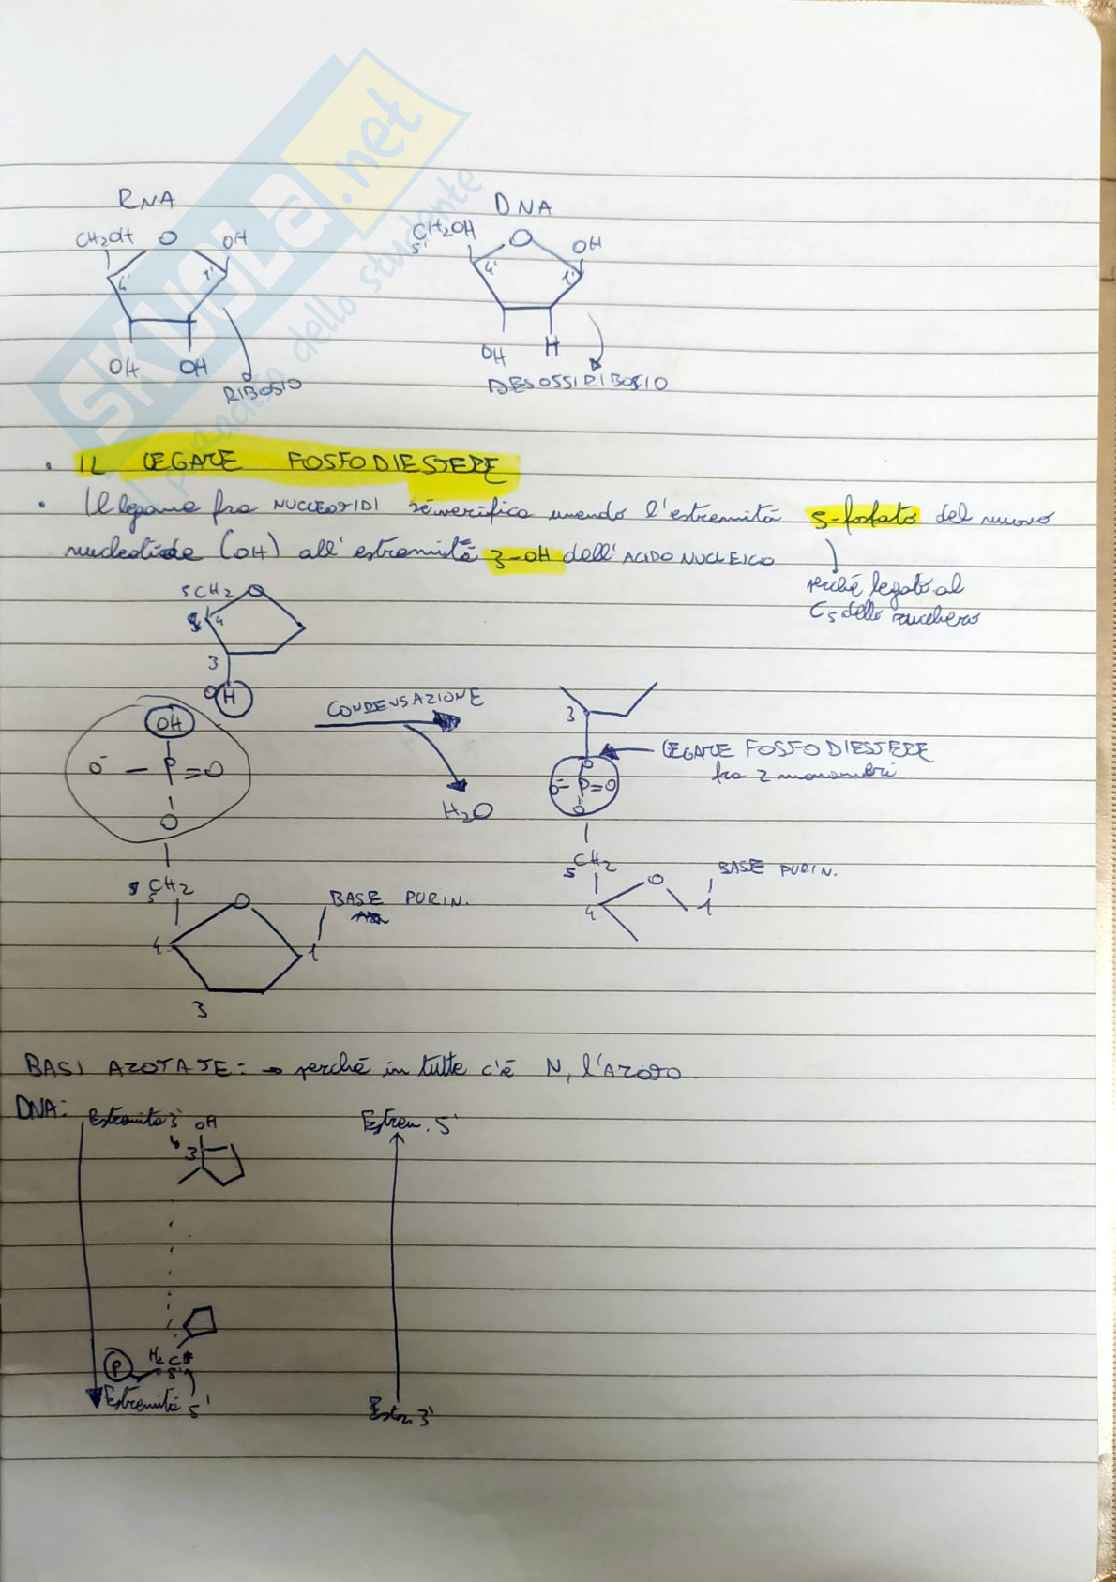 SKUOLA.net
il paradiso dello studente
RNA
DNA
CH2OH O OH
5' CH2OH O OH
4' 1'
4' 1'
OH OH
OH H
RIBOSIO
DESOSSIRIBOSIO
• IL LEGAME FOSFODIESTERE
• Il legame fra NUCLEOTIDI si verifica unendo l'estremità 5-fosfato del nuovo
nucleotide (OH) all'estremità 3-OH dell'ACIDO NUCLEICO
perché legato al
C5 dello zucchero
5CH2 O
4
3
OH
OH
O- — P = O
O
CONDENSAZIONE
H2O
3
LEGAME FOSFODIESTERE
fra 2 monomeri
O
O- P=O
O
5 CH2
4 O 1
BASE PURIN.
5 CH2
O
BASE PURIN.
4 1
3
BASI AZOTATE: → perché in tutte c'è N, l'AZOTO
DNA:
Estremità 3'
OH
3
Estrem. 5'
P H2C
5'
Estremità 5'
Estr. 3'